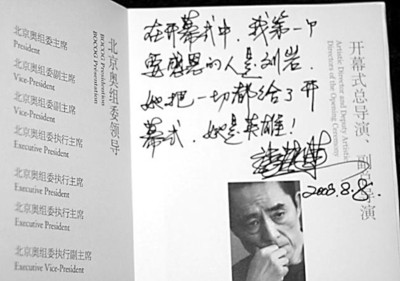 北京奥组委领导
BOCOG Presidentation
北京奥组委主席
President
北京奥组委副主席
Vice-President
北京奥组委副主席
Vice-President
北京奥组委执行主席
Executive President
北京奥组委执行主席
Executive President
北京奥组委执行主席
Executive President
北京奥组委执行副主席
Executive Vice-President
在开幕式中,我第一个
要感恩的人是刘岩.
她把一切都给了开
幕式.她是英雄!
2008.8.8.
开幕式总导演、副总导演
Artistic Director and Deputy Artistic
Directors of the Opening Ceremony